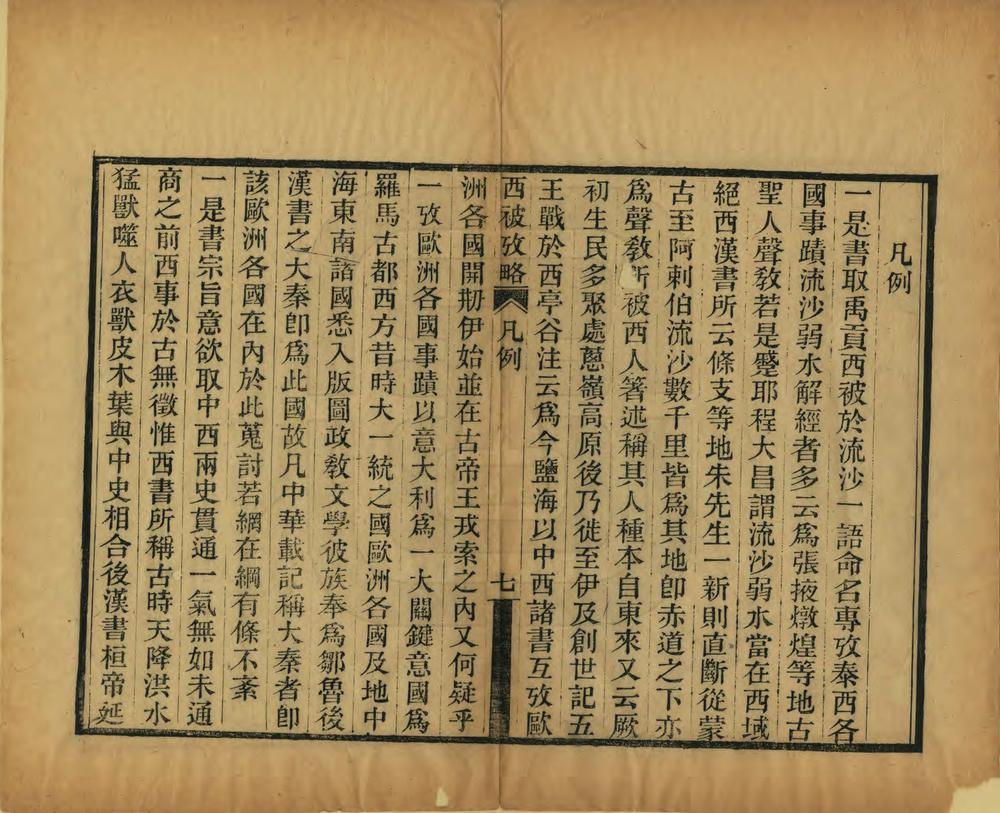 凡例
一是書取禹貢西被於流沙一語命名專攷秦西各
國事蹟流沙弱水解經者多云爲張掖燉煌等地古
聖人聲敎若是蹙耶程大昌謂流沙弱水當在西域
絕西漢書所云條支等地朱先生一新則直斷從蒙
古至阿剌伯流沙數千里皆爲其地卽赤道之下亦
爲聲敎所被西人箸述稱其人種本自東來又云厥
初生民多聚處蔥嶺高原後乃徙至伊及創世記五
王戰於西亭谷注云爲今鹽海以中西諸書互攷歐
西被攷略 凡例 七
洲各國開刱伊始並在古帝王戎索之內又何疑乎
一攷歐洲各國事蹟以意大利爲一大關鍵意國爲
羅馬古都西方昔時大一統之國歐洲各國及地中
海東南諸國悉入版圖政敎文學彼族奉爲鄒魯後
漢書之大秦卽爲此國故凡中華載記稱大秦者卽
該歐洲各國在內於此蒐討若網在綱有條不紊
一是書宗旨意欲取中西兩史貫通一氣無如未通
商之前西事於古無徵惟西書所稱古時天降洪水
猛獸噬人衣獸皮木葉與中史相合後漢書桓帝延